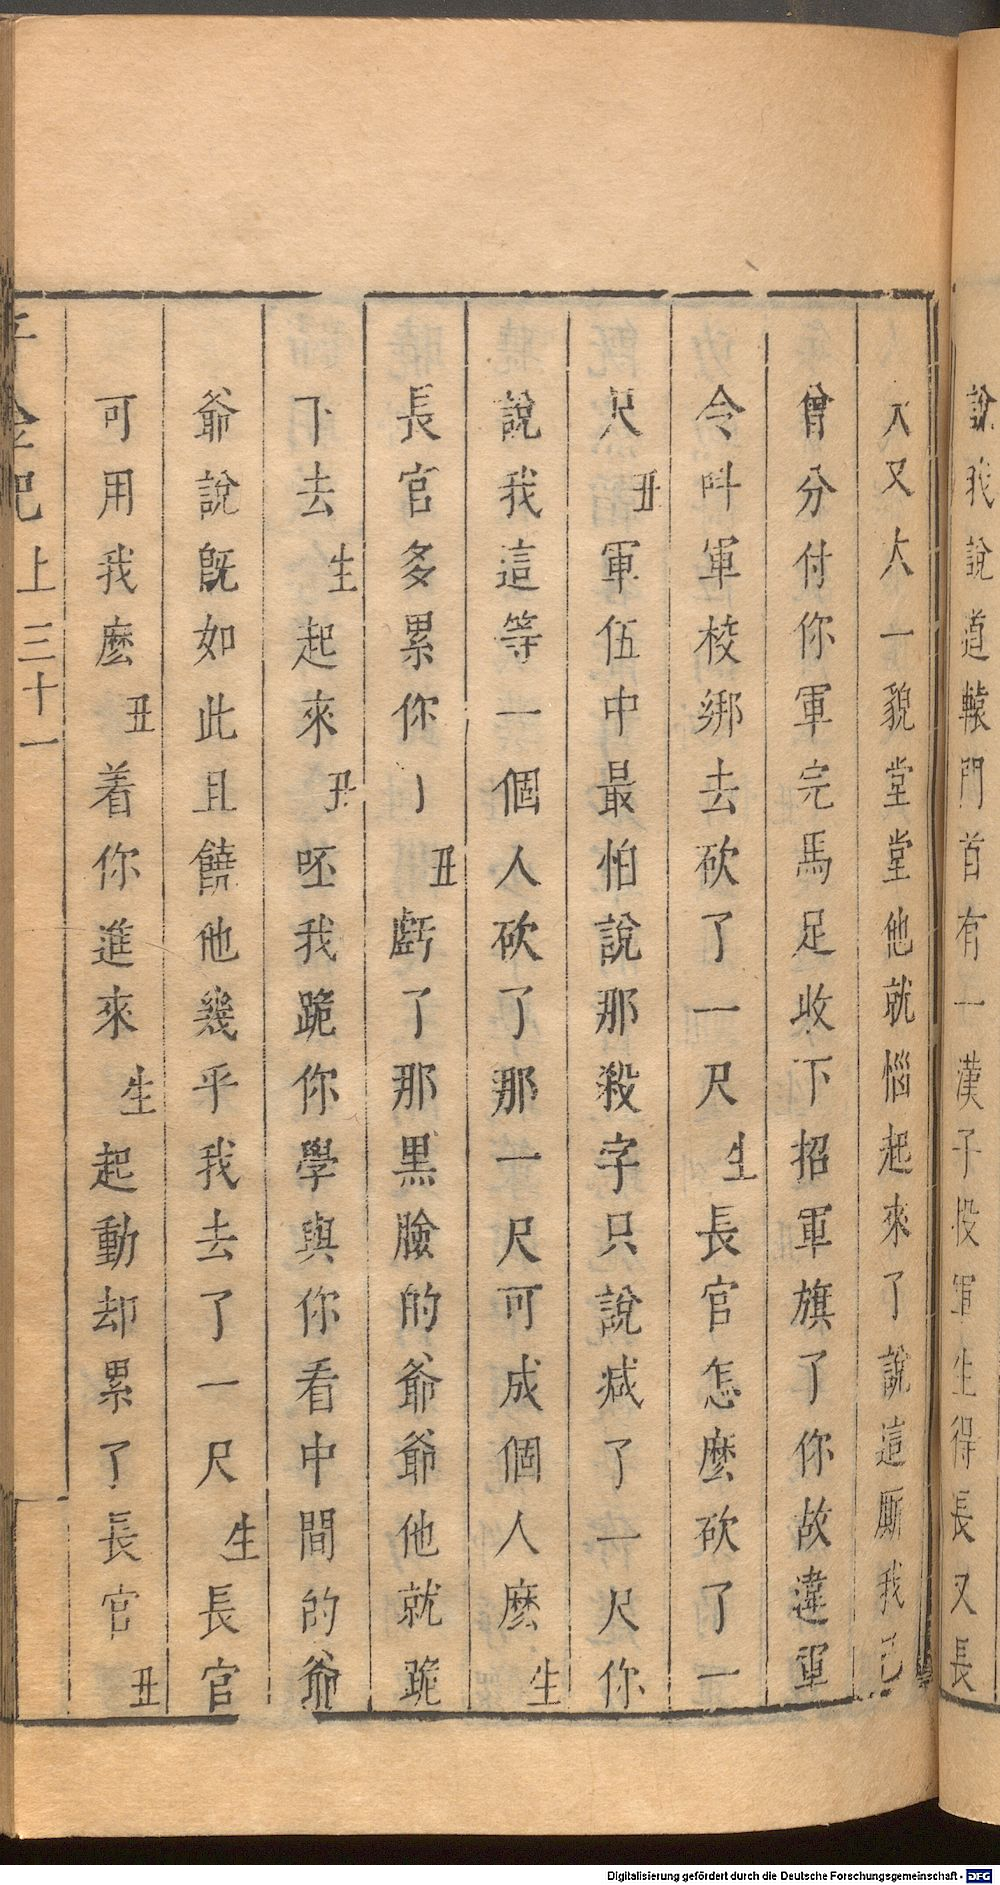 說我說道轅門首有一漢子投軍生得長又長
大又大一貌堂堂他就惱起來了說這厮我已
曾分付你軍完馬足收下招軍旗了你故違軍
令叫軍校綁去砍了一尺生長官怎麽砍了一
尺丑軍伍中最怕說那殺字只說减了一尺你
說我這等一個人砍了那一尺可成個人麽生
長官多累你〻丑虧了那黑臉的爺爺他就跪
下去生起來丑呸我跪你學與你看中間的爺
爺說旣如此且饒他幾乎我去了一尺生長官
可用我麽丑着你進來生起動却累了長官丑
金記 上 三十一
Digitalisierung gefördert durch die Deutsche Forschungsgemeinschaft - DFG